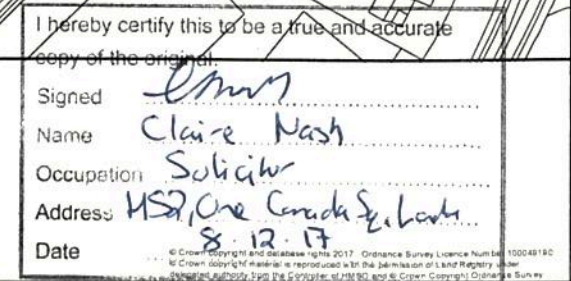 I hereby certify this to be a true and accurate
copy of the original.
Signed
Name Claire Nash
Occupation Solicitor
Address One Canada Sq,
Date 8.12.17
© Crown copyright and database rights 2017 Ordnance Survey Licence Number 100049190
© Crown copyright material is reproduced with the permission of Land Registry under
delegated authority from the Controller of HMSO and © Crown Copyright Ordnance Survey